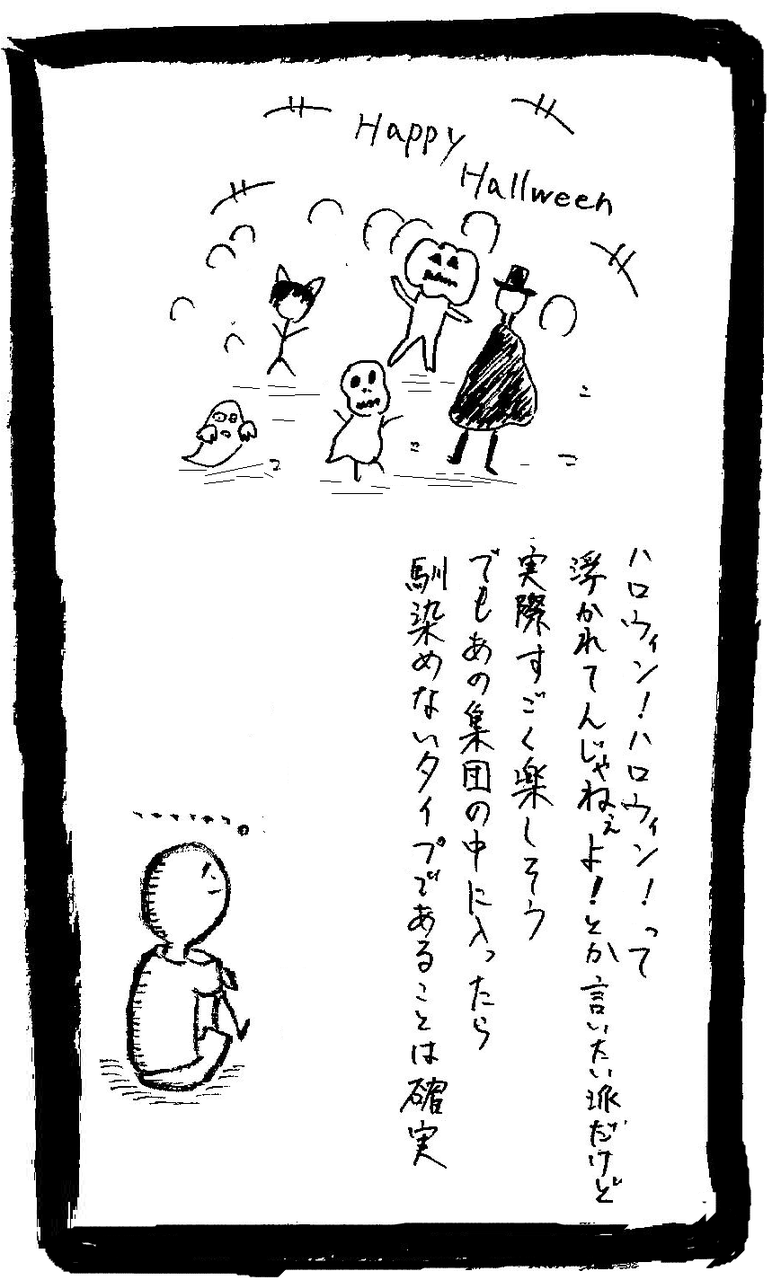 Happy
Hallween
ハロウィン！ハロウィン！って
浮かれてんじゃねぇよ！とか言いたい派だけど
実際すごく楽しそう
でもあの集団の中に入ったら
馴染めないタイプであることは確実